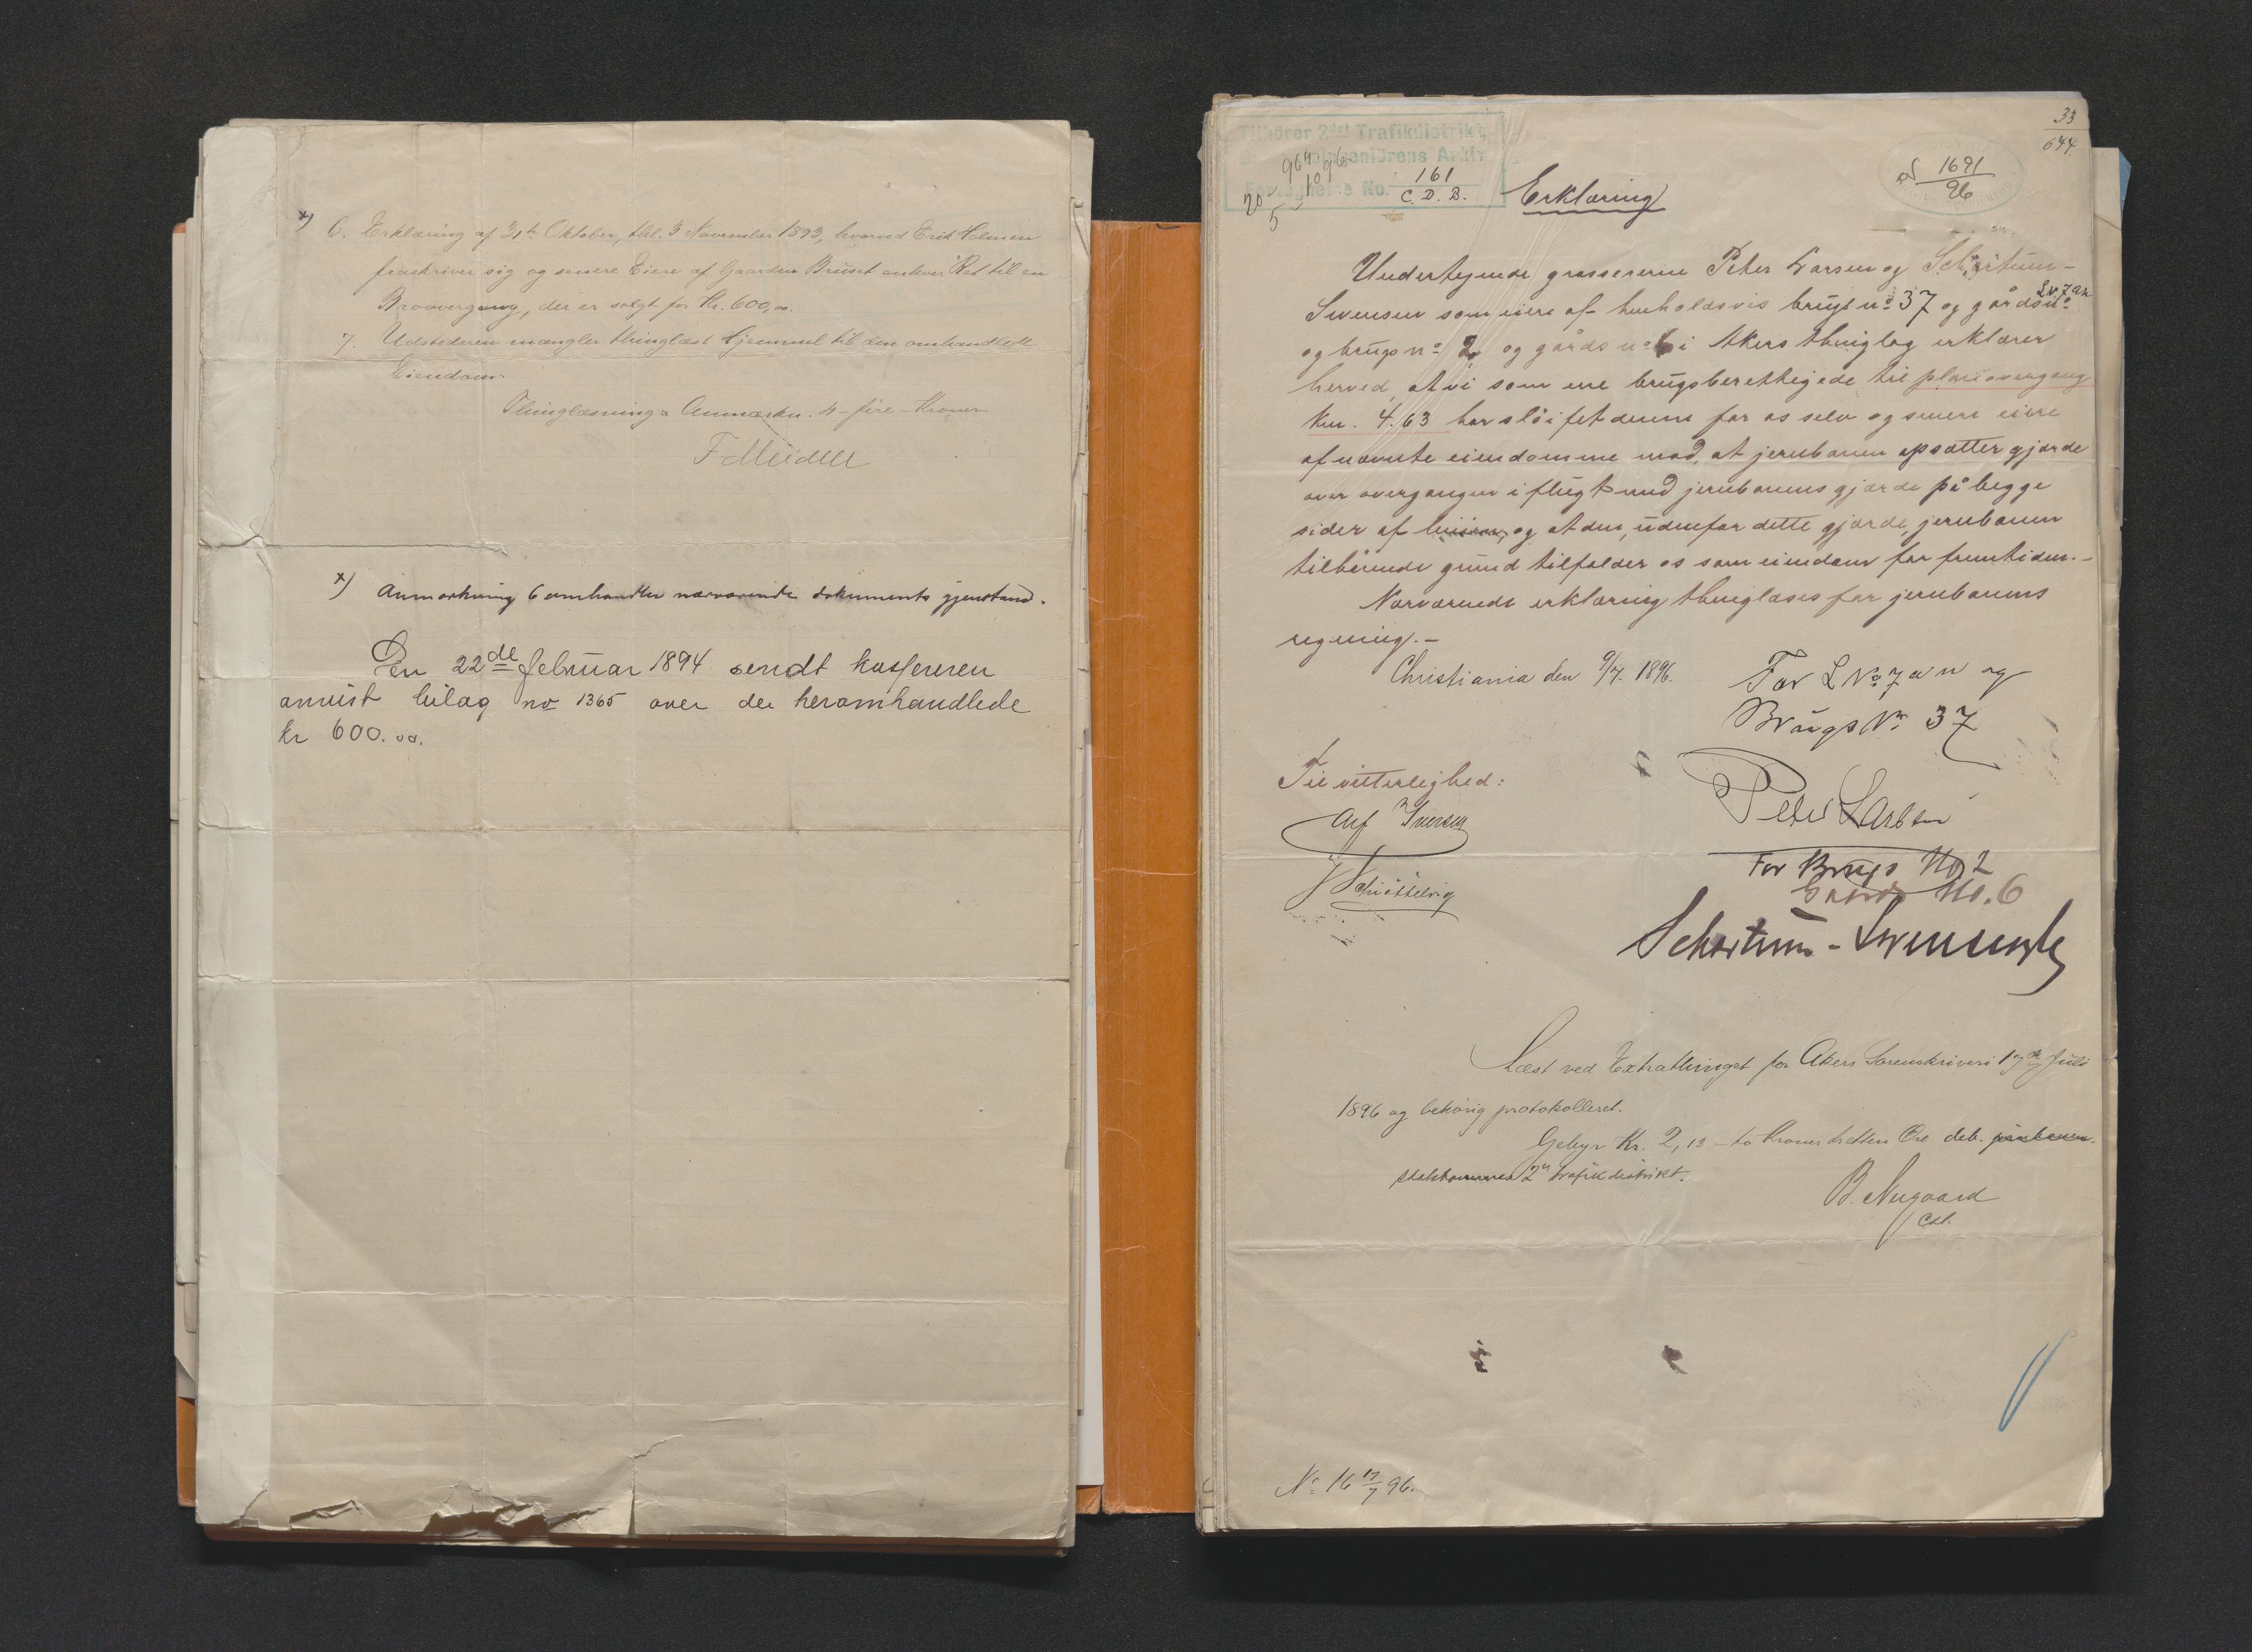 x) 6. Erklæring af 31te Oktober, thl. 3 November 1893, hvorved Erik Holmen
fraskriver sig og senere Eiere af Gaarden Bruset enhver Ret til en
Broovergang, der er solgt for Kr. 600,00.
7. Udstederen mangler thinglæst Hjemmel til den omhandlede
Eiendom.
Thinglæsning & Anmærkn. 4 - fire - Kroner
F. Meidell
x) Anmærkning 6 omhandler nærværende dokuments gjenstand.
Den 22de februar 1894 sendt kassereren
anvist bilag no 1365 over de heromhandlede
kr 600.00.
33
644
Tilhörer 2det Trafikdistrikt,
Arkiv
No. 161
C. D. B.
1691
96
Erklæring
Undertegnede grossererne Peter Larsen og Schartum-
L No 7 an
Svensen som eiere af henholdsvis brugs no 37 og gårds no
og brugs no 2 og gårds no 6 i Akers thinglag erklærer
herved, at vi som ene brugsberettigede til planovergang
Km. 4.63 har slöifet denne for os selv og senere eiere
af nævnte eiendomme mod, at jernbanen opsætter gjærde
over overgangen i flugt med jernbanens gjærde på begge
sider af linien, og at den, udenfor dette gjærde, jernbanen
tilhörende grund tilfalder os som eiendom for fremtiden.-
Nærværende erklæring thinglæses for jernbanens
regning.-
Christiania den 9/7 1896.
For L No 7 an og
Brugs No 37
Til vitterlighed:
Peter Larsen
Alf Iversen
J Schiøttelvig
For Brugs No 2
Gaards No. 6
Schartum-Svensen
Læst ved Extrathinget for Akers Sorenskriveri 17de Juli
1896 og behörig protokolleret.
Gebyr Kr. 2,13 - to Kroner tretten Øre deb. jernbanen.
statsbanernes 2n trafikdistrikt.
B. Nygaard
cst.
No 16 17/7 96.